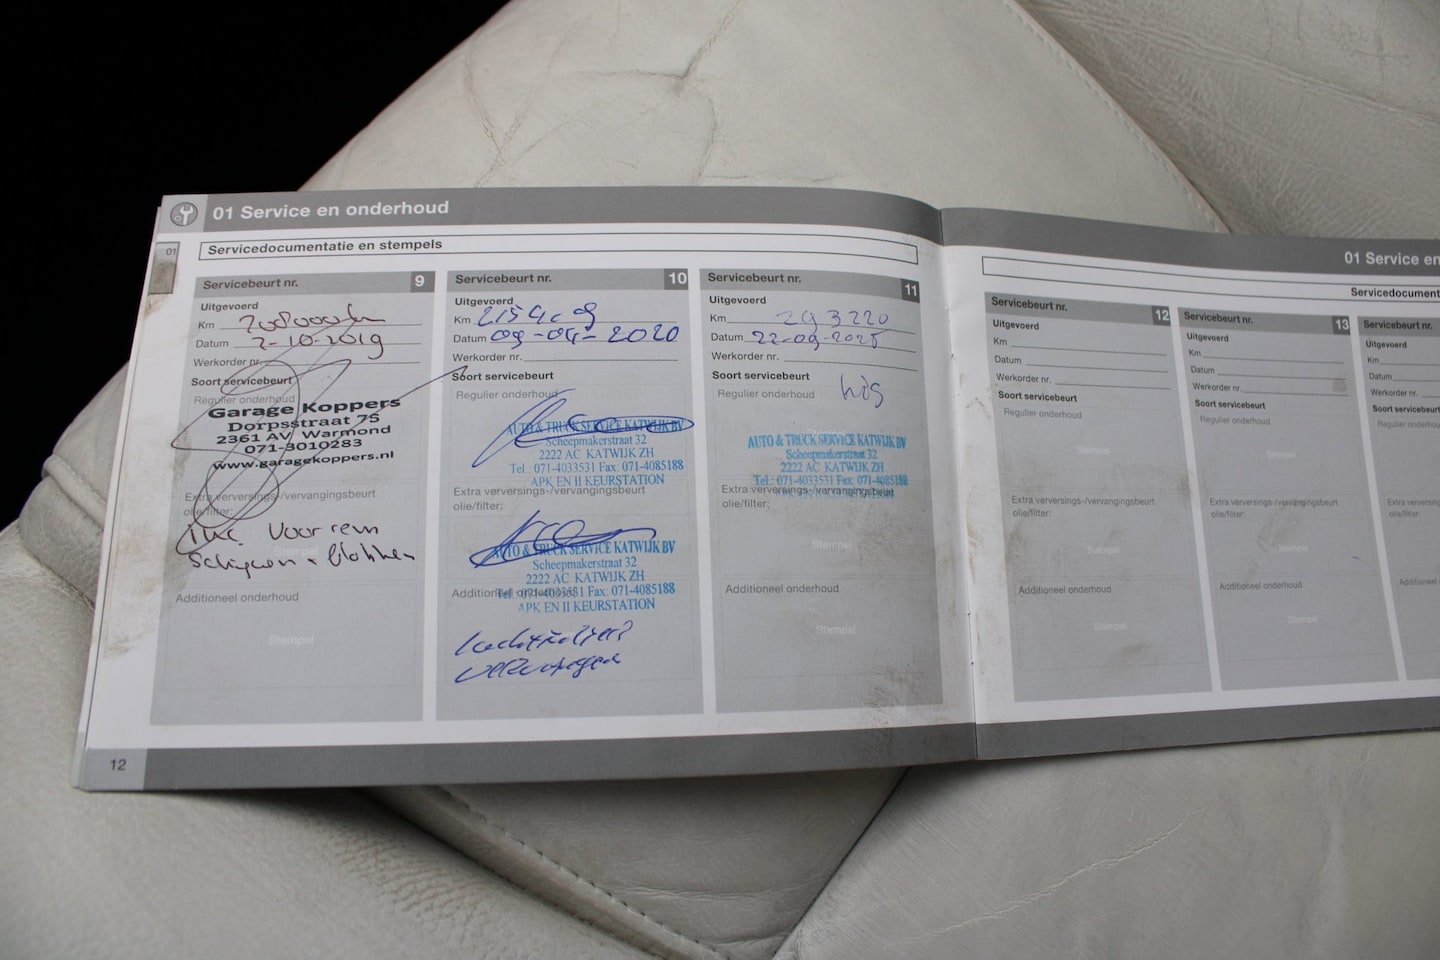 01 Service en onderhoud
01
Servicedocumentatie en stempels
Servicebeurt nr. 9
Uitgevoerd
Km 208000km
Datum 2-10-2019
Werkorder nr.
Soort servicebeurt
Regulier onderhoud
Garage Koppers
Dorpsstraat 75
2361 AV Warmond
071-3010283
www.garagekoppers.nl
Extra verversings-/vervangingsbeurt
olie/filter:
inc. Voor rem
Schijven + blokken
Stempel
Additioneel onderhoud
Stempel
12
Servicebeurt nr. 10
Uitgevoerd
Km
Datum 09-04-2020
Werkorder nr.
Soort servicebeurt
Regulier onderhoud
AUTO & TRUCK SERVICE KATWIJK BV
Scheepmakerstraat 32
2222 AC KATWIJK ZH
Tel.: 071-4033531 Fax: 071-4085188
APK EN II KEURSTATION
Extra verversings-/vervangingsbeurt
olie/filter:
AUTO & TRUCK SERVICE KATWIJK BV
Scheepmakerstraat 32
2222 AC KATWIJK ZH
Additioneel onderhoud
Tel.: 071-4033531 Fax: 071-4085188
APK EN II KEURSTATION
Servicebeurt nr. 11
Uitgevoerd
Km 293220
Datum
Werkorder nr.
Soort servicebeurt
Regulier onderhoud
AUTO & TRUCK SERVICE KATWIJK BV
Scheepmakerstraat 32
2222 AC KATWIJK ZH
Tel.: 071-4033531 Fax: 071-4085188
Extra verversings-/vervangingsbeurt
olie/filter:
Stempel
Additioneel onderhoud
Stempel
01 Service en
Servicedocument
Servicebeurt nr. 12
Uitgevoerd
Km
Datum
Werkorder nr.
Soort servicebeurt
Regulier onderhoud
Stempel
Extra verversings-/vervangingsbeurt
olie/filter:
Stempel
Additioneel onderhoud
Stempel
Servicebeurt nr. 13
Uitgevoerd
Km
Datum
Werkorder nr.
Soort servicebeurt
Regulier onderhoud
Stempel
Extra verversings-/vervangingsbeurt
olie/filter:
Stempel
Additioneel onderhoud
Stempel
Servicebeurt nr.
Uitgevoerd
Km
Datum
Werkorder nr.
Soort servicebeurt
Regulier onderhoud
Extra verversings
olie/filter:
Additioneel